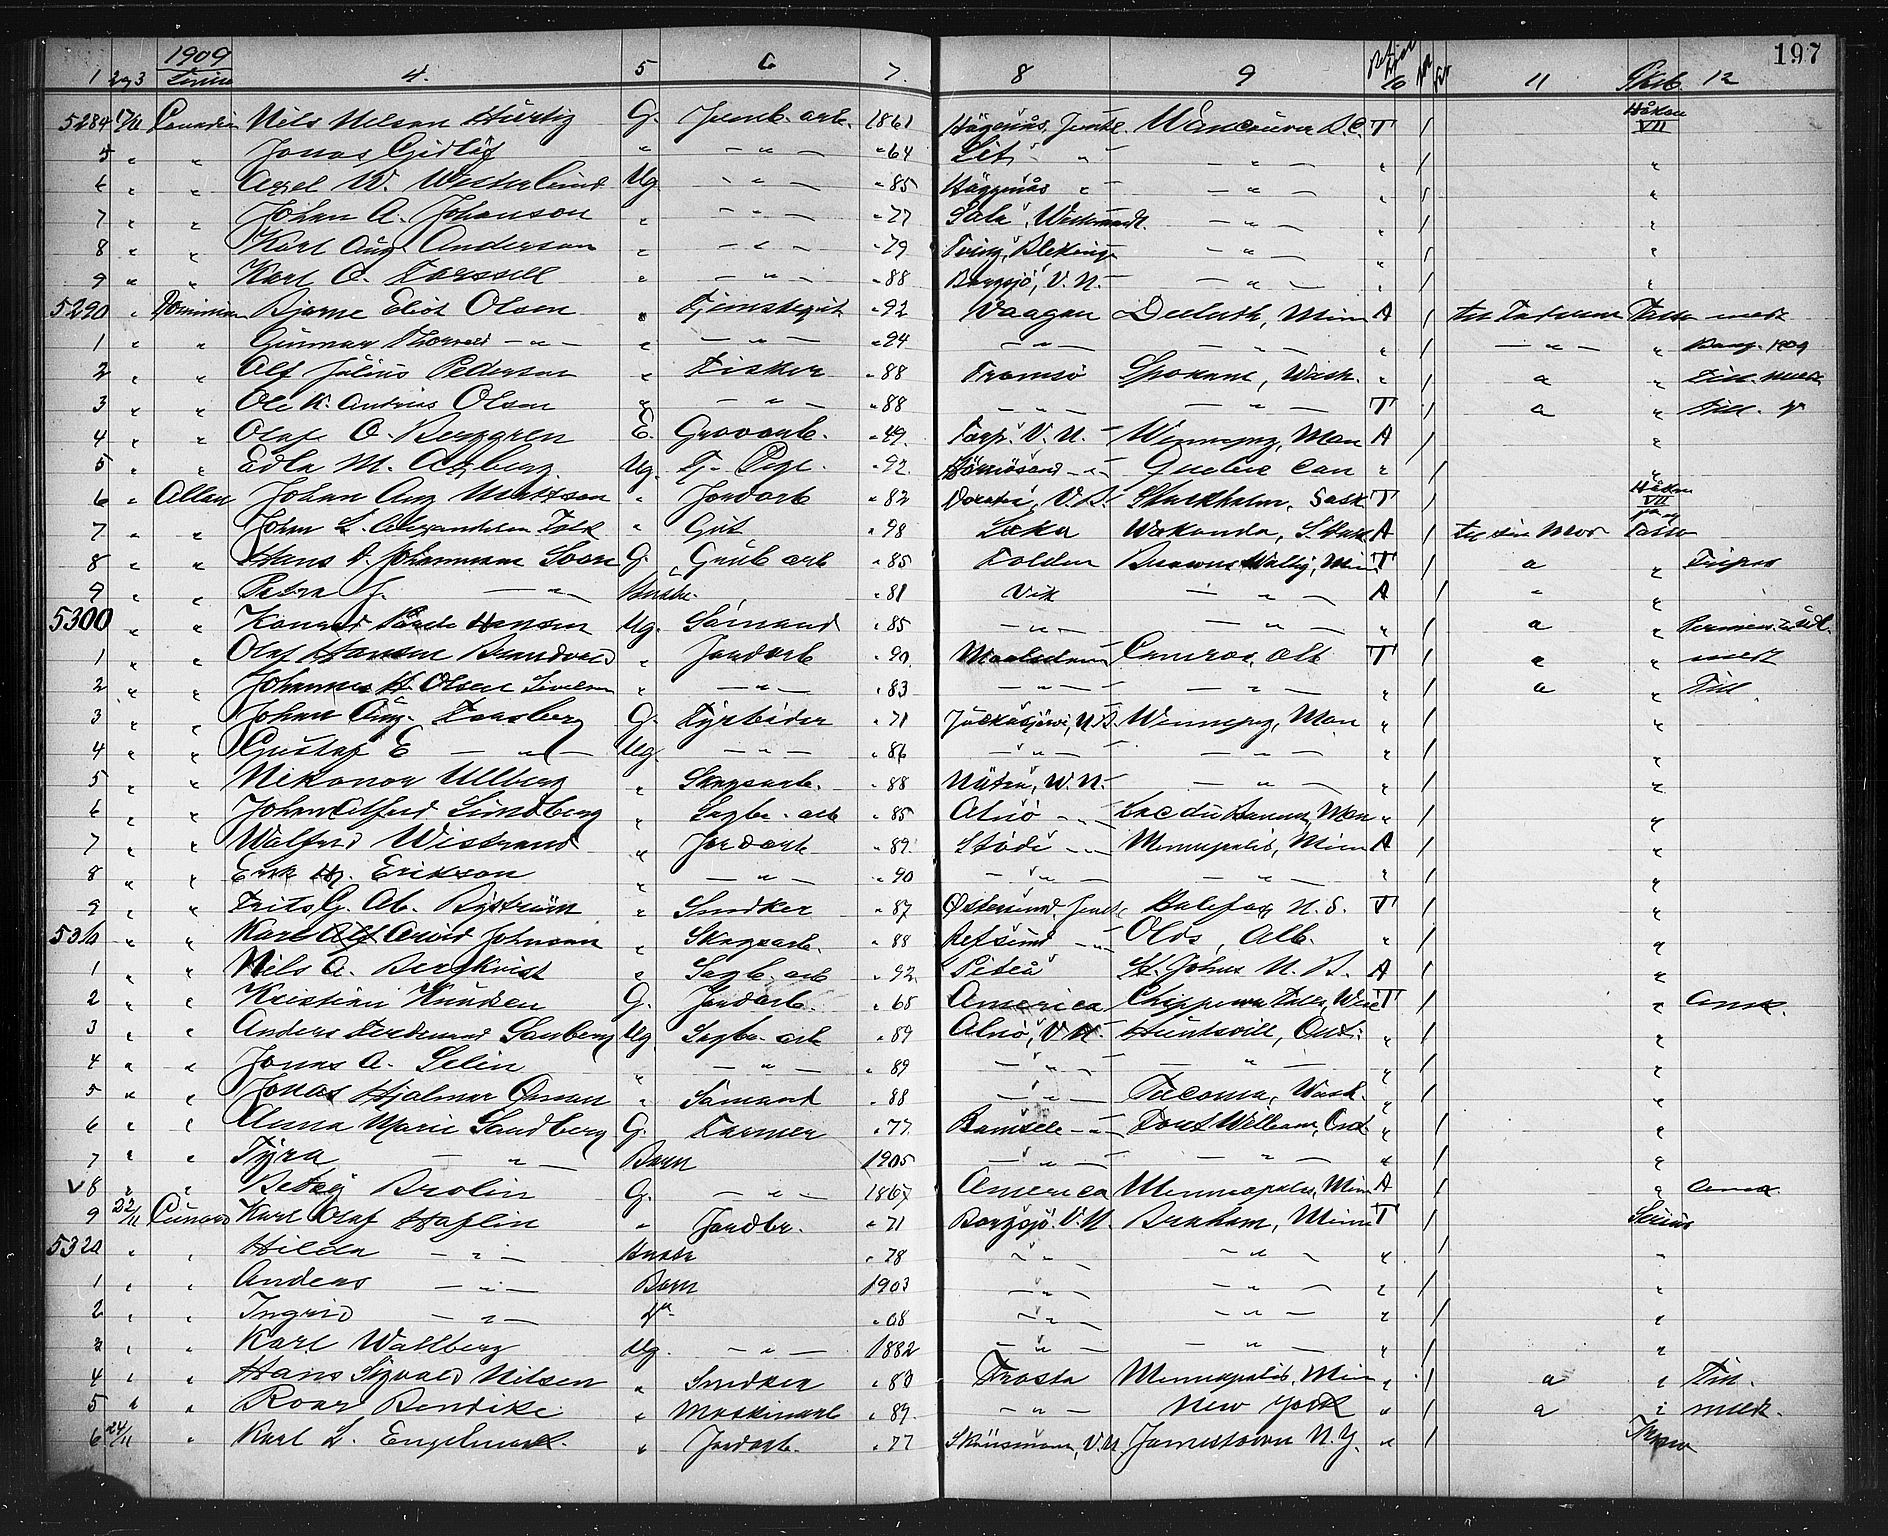 197
1909
1 2og3 Linie 4. 5 6 7. 8 9 10 11 Skib. 12
5284 17/11 Canadian Nils Nelson Hürtig G. Jernb. arb. 1861 Häggenås, Jemtl. Wancouver B.C. T / Håkon VII
5 " " Jonas Gidlöf " — " — " 64 Lit " — " — " / "
6 " " Axel W. Westerlund Ug — " — " 85 Häggenås " — " — " / "
7 " " Johan A. Johanson " — " — " 77 Sala, Westmanl. — " — " / "
8 " " Karl Aug. Anderson " — " — " 79 Tving, Blekinge — " — " / "
9 " " Karl O. Forssell " — " — " 88 Borgsjö, V.N. — " — " / "
5290 " Dominion Bjarne Eliot Olsen " " 92 Vaagan Duluth, Minn A / til Tasso medt
1 " " Gunnar Thorvald — " — " — " — " 94 — " — — " — " / — " — " 1909
2 " " Alf Julius Pedersen " Fisker " 88 Tromsö Spokane, Wash. " / a " Fin. medt
3 " " Ole K. Andreas Olsen " — " — " 88 — " — — " — T / a "
4 " " Olaf O. Berggren E. Grovarb. " 49 Torp, V.N. Winnipeg, Man A / "
5 " " Edla M. Ug. T. Pige " 92 Hörnösand — " — Quebec Can " / "
6 " Allan Johan Aug " Jordarb " 82 V.B. Stockholm, Sask T / Håkon VII
7 " " John L. Alexandersen Falk " Gut " 98 Leka Wakonda, S. Dak A / til sin Mor Tasso
8 " " Hans A. Johannesen G. Grub. arb " 85 Folden Browns Vally, Minn T / a "
9 " " Petra J. — " — Hustr. " 81 Vik — " — A / " "
5300 " " Konrad Hansen Ug. Sömand " 85 — " — — " — " / a "
1 " " Olaf Hansen Brandvold " Jordarb " 90 Maalselven Camrose, Alb T / a " medt
2 " " Johannes H. Olsen " — " — " 83 — " — — " — " / a "
3 " " Johan Aug. Forsberg G. Fyrböder " 71 Jukkasjärvi, N.B. Winnipeg, Man " / "
4 " " Gustaf E — " — Ug. — " — " 86 — " — — " — " / "
5 " " Nikanor Ullberg " Skogsarb. " 88 Nätra, W.N. — " — " / "
6 " " Johan Alfred Lindberg " Sagbr. arb " 85 Alnö — " — Lac du Bonnet, Man " / "
7 " " Walfrid Wistrand " Jordarb " 89 Stöde — " — Minneapolis, Minn A / "
8 " " Erik Hj. Erikson " — " — " 90 — " — — " — " / "
9 " " Frits G. Ab. Byström " Snidker " 87 Östersund, Jemtl. Halifax N.S. T / "
5310 " " Karl Arvid Johnson " Skogsarb. " 88 Refsund — " — Olds, Alb. " / "
1 " " Nils A. Bergkvist " Sagb. arb " 92 Piteå St. Johns N.B. A / "
2 " " Kristian Knudsen G. Jordarb. " 65 America Chippewa Falls, Wisc T / " Amk.
3 " " Anders Ferdinand Sandberg Ug. Sagbr. arb " 89 Alnö, V.N. Huntsvill, Ont. " / "
4 " " Jonas A. Selin " — " — " 89 — " — — " — " / "
5 " " Jonas Hjalmar Öman " Sömand " 88 — " — Tacoma, Wash. " / "
6 " " Anna Marie Sandberg G. Farmer " 77 Ramsele — " — Fort William, Ont " / "
7 " " Tyra — " — Barn 1905 — " — — " — " / "
v 8 " " Betsy Brolin G. — " — 1867 America Minneapolis, Minn A / "
9 22/11 Cunard Karl Olaf Haflin " Jordbr. " 71 Borgsjö, V.N. Braham, Minn T / Sirius
5320 " " Hilda — " — Hustr " 78 — " — — " — " / "
1 " " Anders — " — Barn 1903 — " — — " — " / "
2 " " Ingrid — " — " 08 — " — — " — " / "
3 " " Karl Wahlberg Ug. — " — 1882 — " — — " — " / "
4 " " Hans Sigvald Nilsen " Snidker " 80 Frosta Minneapolis, Minn " / a " Fin.
5 " " Roar Bendike " Maskinarb " 89. — " — New York " / a " medt.
6 24/11 " Karl L. Engelmark. " Jordarb. " 77 Skönsmon, V.N. Jamestown N.Y. " /